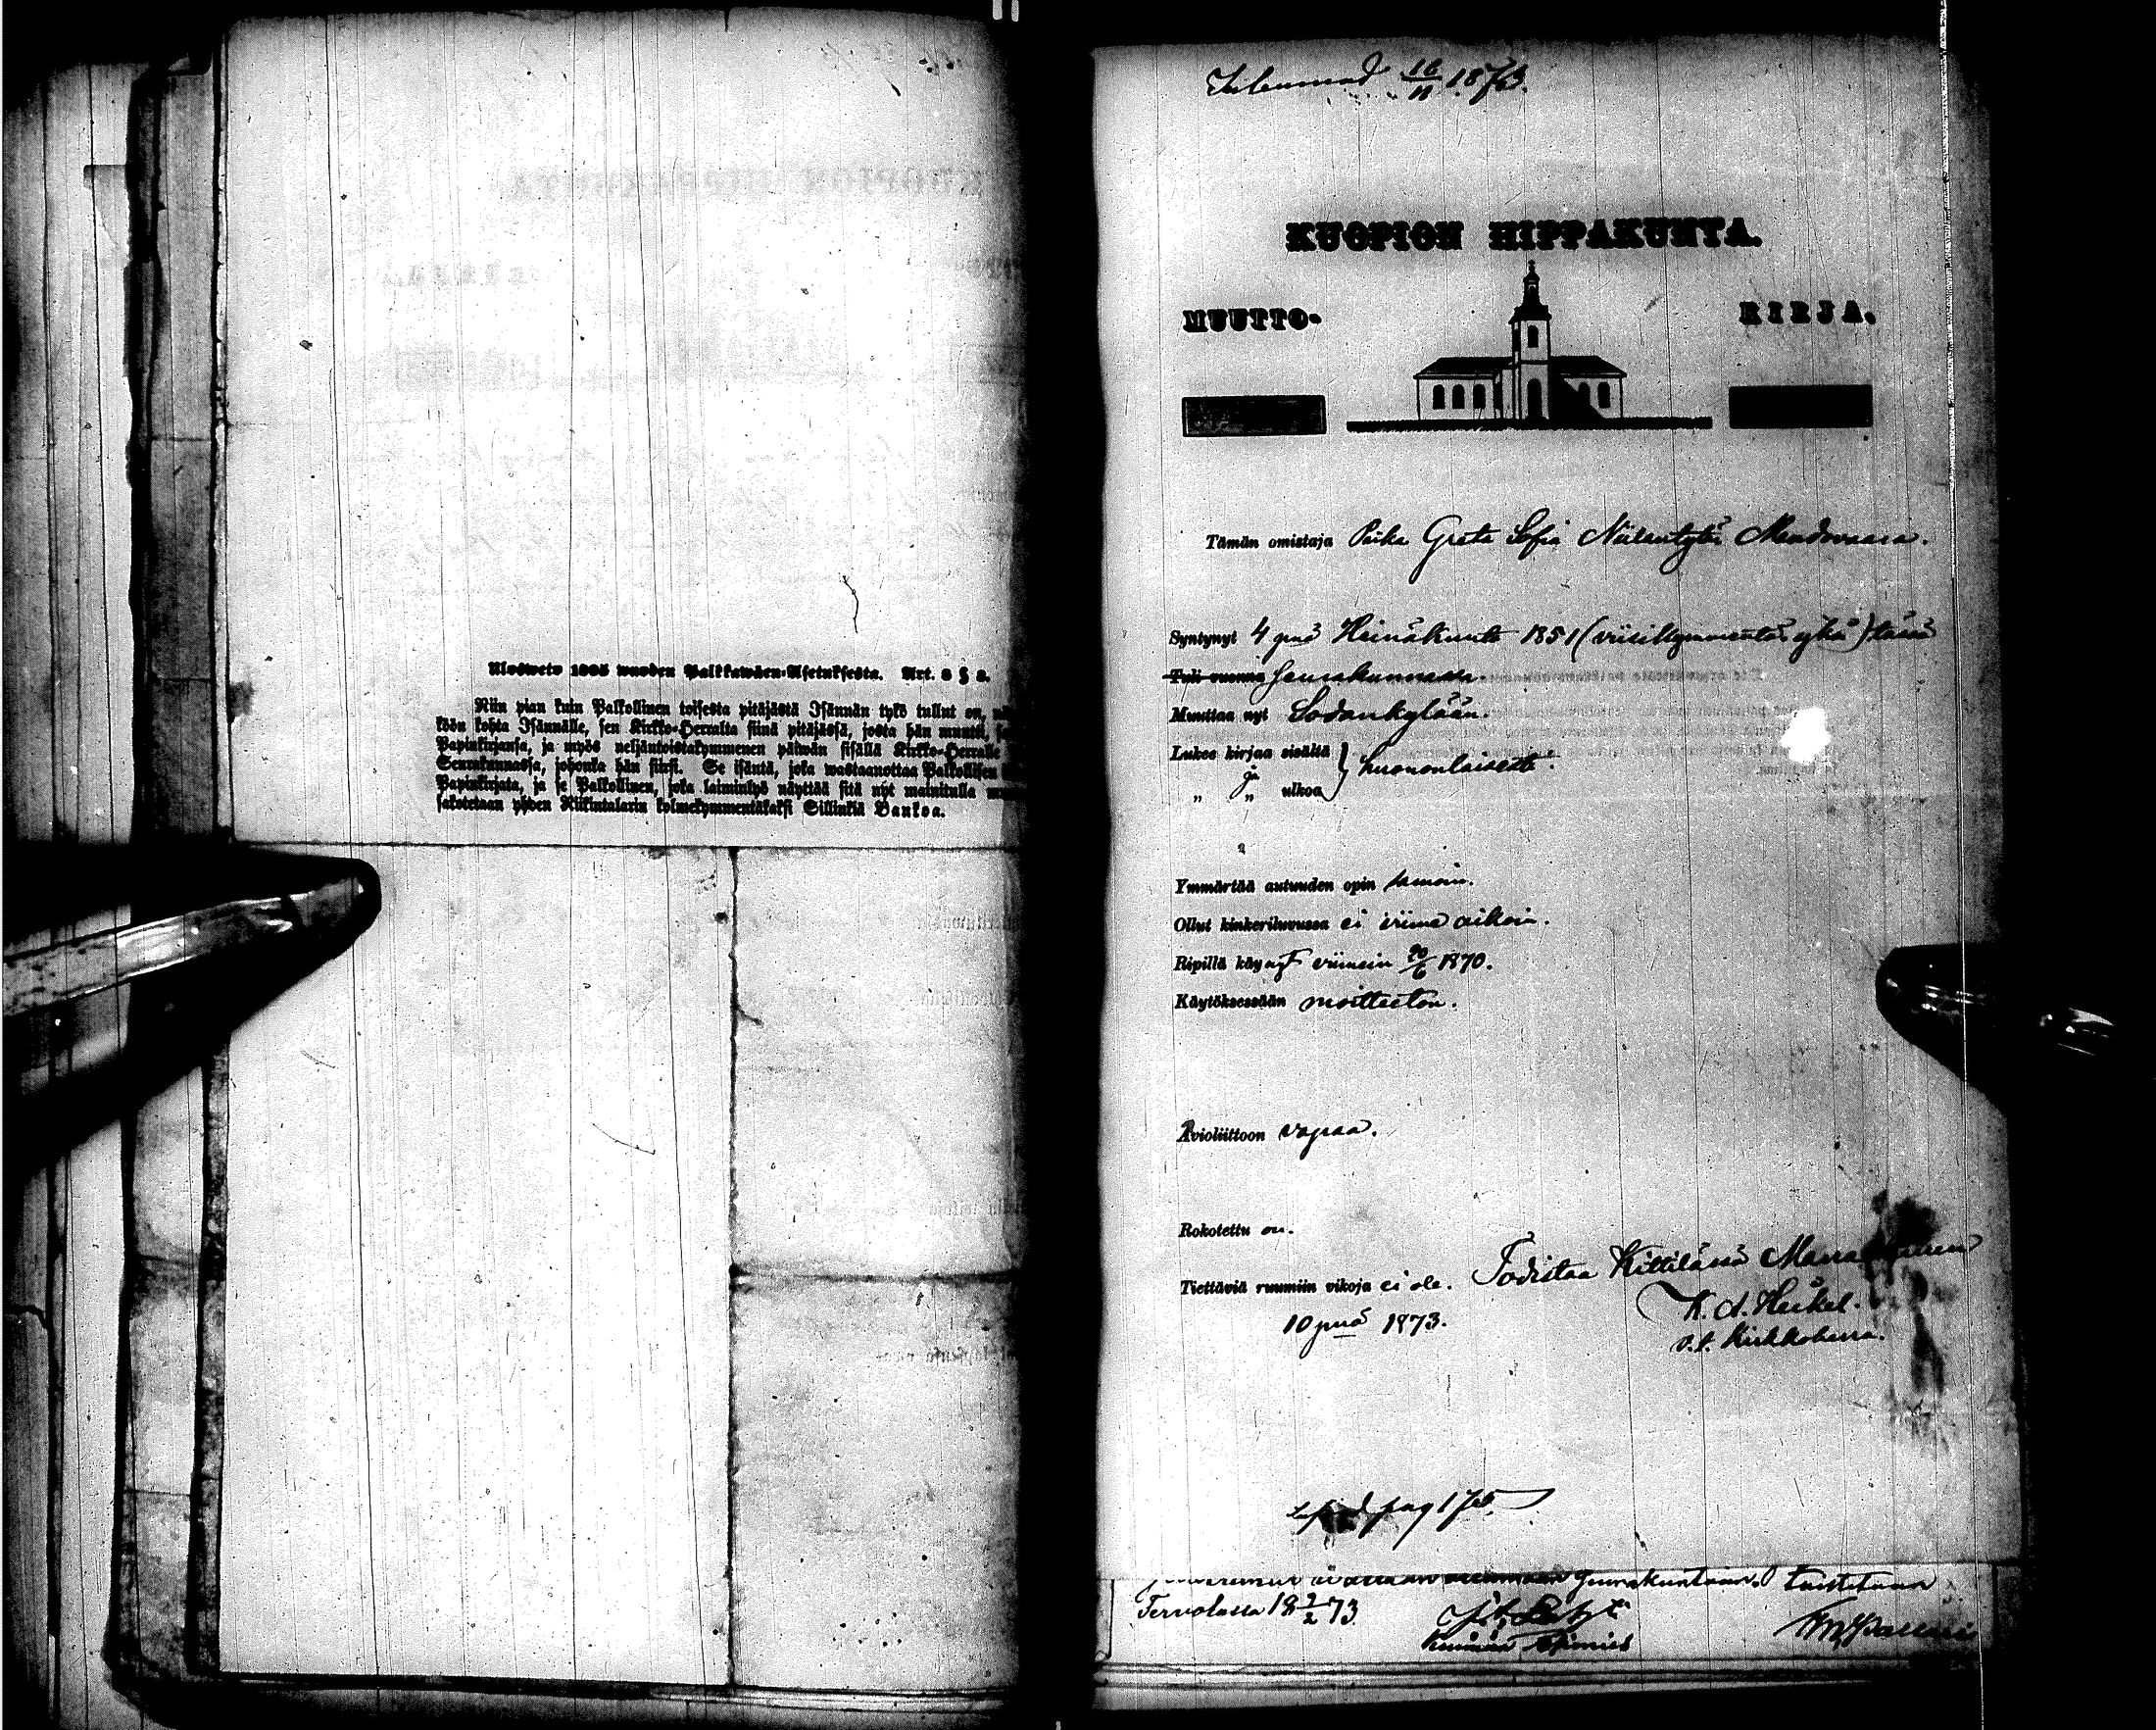 Uloswetv 1805 wuoden Palkkawäen-Asetuksesta. Art. 8 § 3.
Niin pian kuin Palkollinen toisesta pitäjästä Isännän tykö tullut on,
köön kohta Isännälle, sen Kirkko-Herralta siinä pitäjässä, josta hän muutti,
Papinkirjansa, ja myös neljäntoistakymmenen päiwän sisällä Kirkko-Herralle
Seurakunnassa, johonka hän siirsi. Se isäntä, joka wastaanottaa Palkollisen
Papinkirjata, ja se Palkollinen, joka laiminlyö näyttää sitä nyt mainitulla
sakotetaan yhden Riikintalarin kolmekymmentäkaksi Sillinkiä Bankoa.
16/11 1873.
KUOPION HIPPAKUNTA.
MUUTTO- KIRJA.
Tämän omistaja Piika Greta Sofia Niilentytär
Syntynyt 4 pnä Heinäkuuta 1851 (viisikymmentä yksi) tässä
Tuli vuonna seurakunnassa.
Muuttaa nyt Sodankylään.
Lukee kirjaa sisältä } huononlaisesti.
„ ja „ ulkoa
Ymmärtää autuuden opin samoin.
Ollut kinkeriluvussa ei viime aikoin.
Ripillä käynyt viimein 20/6 1870.
Käytöksessään moitteeton.
Avioliittoon vapaa.
Rokotettu on.
Tiettäviä ruumiin vikoja ei ole. Todistaa Kittilässä
10 pnä 1873.
K. A. Heikel.
v.t. Kirkkoherra.
pag 175
seurakuntaan, tuistetaan
Tervolassa 18 2/2 73